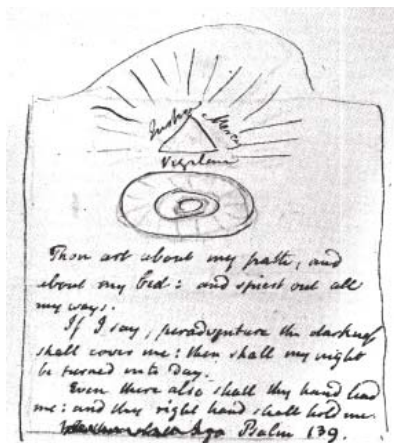 Justice
Mercy
Vigilance
Thou art about my path, and
about my bed: and spiest out all
my ways.
If I say, peradventure the darkness
shall cover me: then shall my night
be turned into Day.
Even there also shall thy hand lead
me: and thy right hand shall hold me.
Psalm 139.